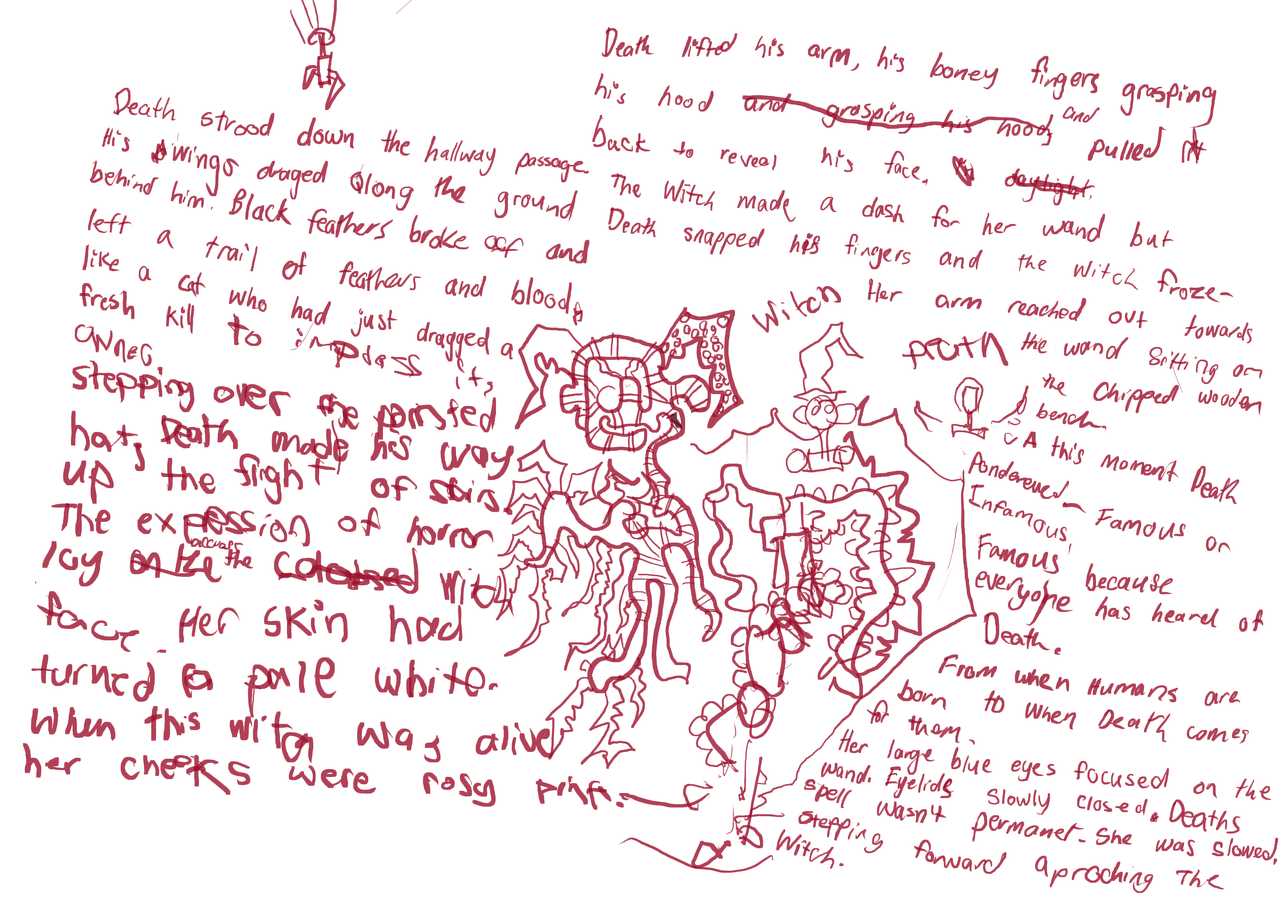 Death strood down the hallway passage.
His wings draged along the ground
behind him. Black feathers broke off and
left a trail of feathers and blood,
like a cat who had just dragged a
fresh kill to impass it's
owner
stepping over the pointed
hat, Death made his way
up the flight of stirs.
The expression of horror
lay across the Wit
face. Her skin had
turned a pale white.
When this witch was alive
her cheeks were rosy pink.
Death lifted his arm, his boney fingers grasping
his hood and grasping his hood, and pulled it
back to reveal his face. daylight.
The Witch made a dash for her wand but
Death snapped his fingers and the witch froze-
Her arm reached out towards
the wand Sitting on
the Chipped wooden
bench.
A this moment Death
Pondereued - Famous or
Infamous,
Famous because
everyone has heard of
Death.
From when Humans are
born to when Death comes
for them.
Her large blue eyes focused on the
wand. Eyelids slowly closed. Deaths
spell wasn't permanet- She was slowed.
stepping forward aproching The
Witch.
Witch
Death